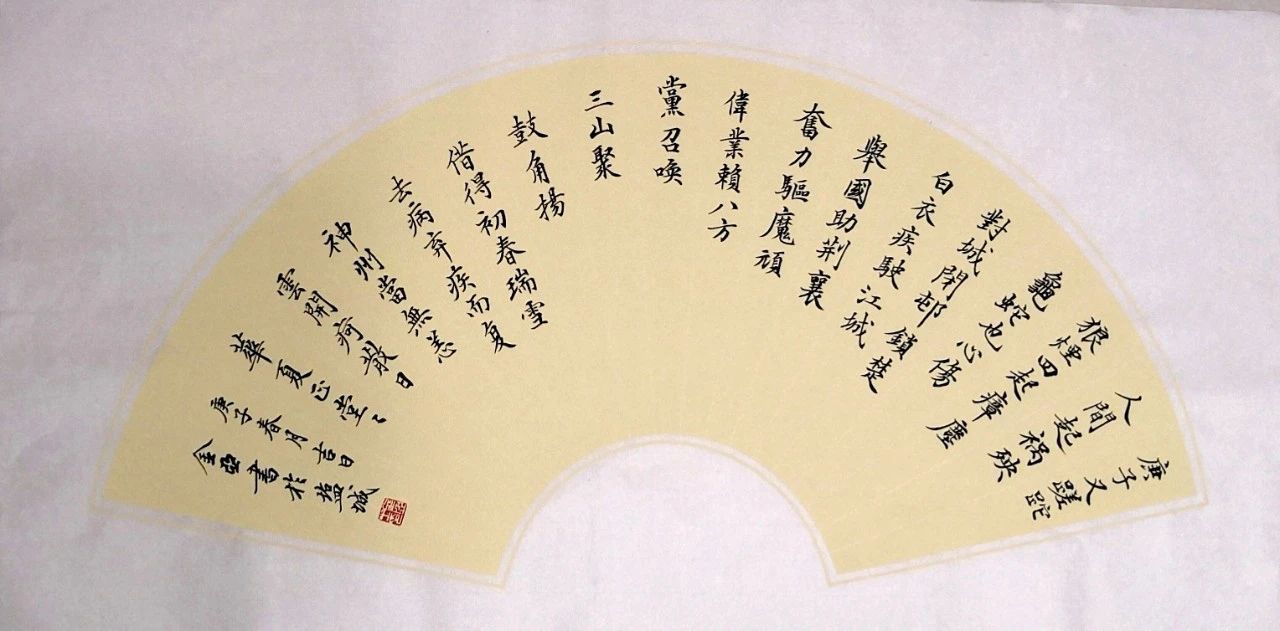 庚子又蹉跎
人間起祸殃
狼煙四起瘴塵
龜蛇也心傷
對城閉邨鎖楚
白衣疾駛江城
舉國助荆襄
奮力驅魔頑
偉業賴八方
黨召唤
三山聚
鼓角揚
偕得初春瑞雪
去病弃疾而复
神州當無恙
雲開疴散日
華夏正堂々
庚子春月吉日
金亞書於盐城